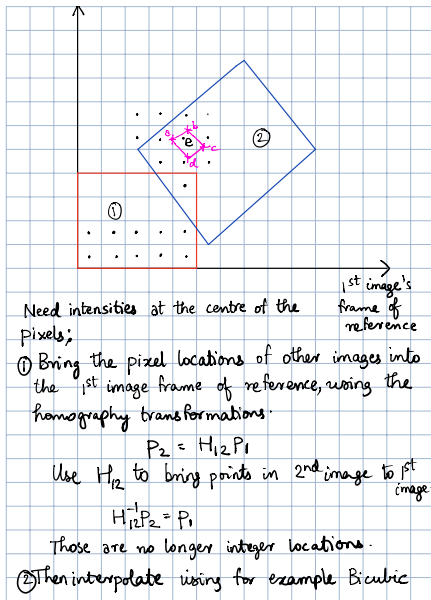 a
b
c
d
e
②
①
1st image's
frame of
reference
Need intensities at the centre of the
pixels;
① Bring the pixel locations of other images into
the 1st image frame of reference, using the
homography transformations.
P₂ = H₁₂P₁
Use H₁₂ to bring points in 2nd image to 1st
image
H₁₂⁻¹P₂ = P₁
Those are no longer integer locations.
② Then interpolate using for example Bicubic